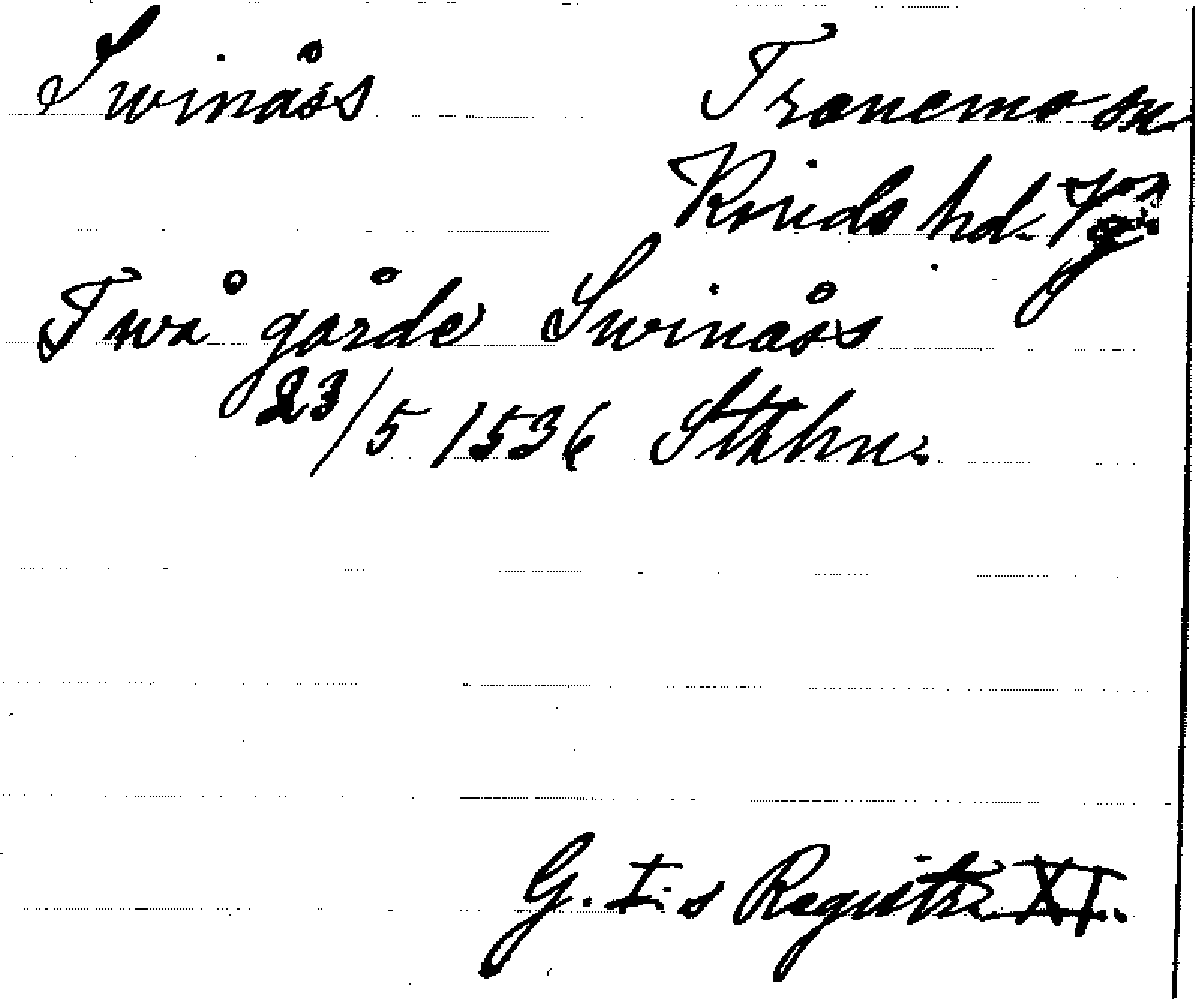 Swinåss Tranemo sn
Kinds hd. Vg
Twå gårde Swinåss
23/5 1536 Sthlm.
G. I:s Registr. XI.